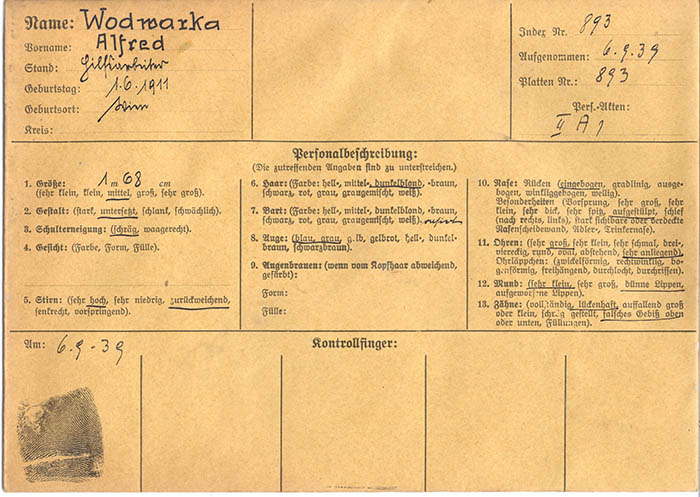 Name: Wodwarka
Vorname: Alfred
Stand: Hilfsarbeiter
Geburtstag: 1.6.1911
Geburtsort: Wien
Kreis:
Index Nr. 893
Aufgenommen: 6.9.39
Platten Nr.: 893
Pers.-Akten:
II A 1
Personalbeschreibung:
(Die zutreffenden Angaben sind zu unterstreichen.)
1. Größe: 1 m 68 cm
(sehr klein, klein, mittel, groß, sehr groß).
2. Gestalt: (stark, untersetzt, schlank, schwächlich).
3. Schulterneigung: (schräg, waagerecht).
4. Gesicht: (Farbe, Form, Fülle).
5. Stirn: (sehr hoch, sehr niedrig, zurückweichend,
senkrecht, vorspringend).
6. Haar: (Farbe: hell-, mittel-, dunkelblond, -braun,
schwarz, rot, grau, graugemischt, weiß).
7. Bart: (Farbe: hell-, mittel-, dunkelblond, -braun,
schwarz, rot, grau, graugemischt, weiß). rasiert
8. Auge: (blau, grau, gelb, gelbrot, hell-, dunkel-
braun, schwarzbraun).
9. Augenbrauen: (wenn vom Kopfhaar abweichend,
gefärbt):
Form:
Fülle:
10. Nase: Rücken (eingebogen, gradlinig, ausge-
bogen, winkliggebogen, wellig).
Besonderheiten (Vorsprung, sehr groß, sehr
klein, sehr dick, sehr spitz, aufgestülpt, schief
(nach rechts, links), stark sichtbare oder verdeckte
Nasenscheidewand, Adler-, Trinkernase).
11. Ohren: (sehr groß, sehr klein, sehr schmal, drei-,
viereckig, rund, oval, abstehend, sehr anliegend)
Ohrläppchen: (zwickelförmig, rechtwinklig, bo-
genförmig, freihängend, durchlocht, durchrissen).
12. Mund: (sehr klein, sehr groß, dünne Lippen,
aufgeworfene Lippen).
13. Zähne: (vollständig, lückenhaft, auffallend groß
oder klein, schräg gestellt, falsches Gebiß oben
oder unten, Füllungen).
Am: 6.9-39
Kontrollfinger: